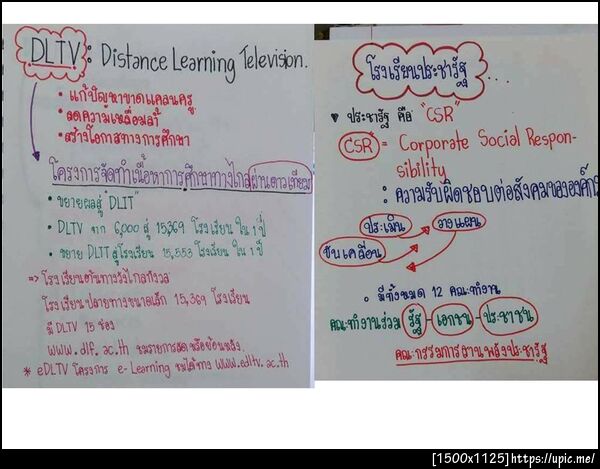 DLTV : Distance Learning Television.
• แก้ปัญหาขาดแคลนครู
• ลดความเหลื่อมล้ำ
• สร้างโอกาสทางการศึกษา
โครงการจัดทำเนื้อหาการศึกษาทางไกลผ่านดาวเทียม
• ขยายผลสู่ "DLIT"
• DLTV จาก 6,000 สู่ 15,369 โรงเรียน ใน 1 ปี
• ขยาย DLIT สู่โรงเรียน 15,553 โรงเรียน ใน 1 ปี
=> โรงเรียนต้นทางวังไกลกังวล
โรงเรียนปลายทางขนาดเล็ก 15,369 โรงเรียน
มี DLTV 15 ช่อง
www.dlf.ac.th ชมรายการสดหรือย้อนหลัง
* eDLTV โครงการ e-Learning ชมได้ทาง www.edltv.ac.th
โรงเรียนประชารัฐ...
♥ ประชารัฐ คือ "CSR"
CSR = Corporate Social Respon-
sibility
: ความรับผิดชอบต่อสังคมขององค์กร
ประเมิน วางแผน
ขับเคลื่อน
• มีทั้งหมด 12 คณะทำงาน
คณะทำงานร่วม รัฐ - เอกชน - ประชาชน
คณะกรรมการสานพลังประชารัฐ
[1500x1125]https://upic.me/